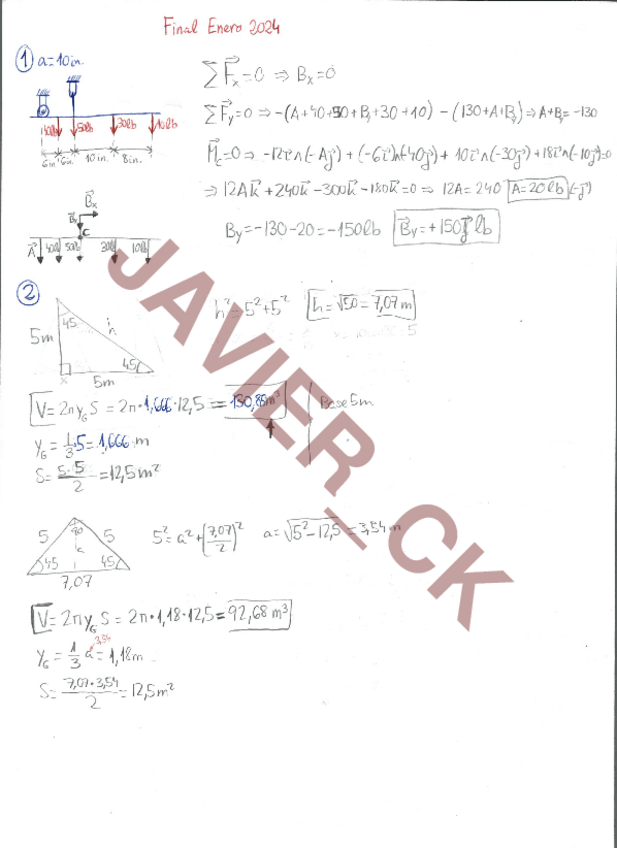 Final Enero 2024
① a=10in.
40lb 50lb 30lb 10lb
6in 6in 10in 8in
∑F⃗x=0 ⇒ Bx=0
∑F⃗y=0 ⇒ -(A+40+50+By+30+10) -(130+A+By) ⇒ A+By=-130
M⃗c=0 ⇒ -12i⃗∧(-Aj⃗)+(-6i⃗)∧(-40j⃗)+10i⃗∧(-30j⃗)+18i⃗∧(-10j⃗)=0
⇒ 12Ak⃗+240k⃗-300k⃗-180k⃗=0 ⇒ 12A=240 A=20lb (-j⃗)
By=-130-20=-150lb B⃗y=+150j⃗ lb
B⃗x
B⃗y
C
A⃗ 40lb 50lb 30lb 10lb
②
45 h
5m
45
x 5m
h²=5²+5² h=√50=7,07m
V=2πyG S=2π·1,666·12,5=130,88m³ Base 5m
yG=1/3·5=1,666 m
S=5·5/2=12,5m²
5 90 5
a
45 45
7,07
5²=a²+(7,07/2)² a=√5²-12,5=3,54m
V=2πyG S=2π·1,18·12,5=92,68m³
3,54
yG=1/3 a=1,18m
S=7,07·3,54/2=12,5m²
JAVIER_CK